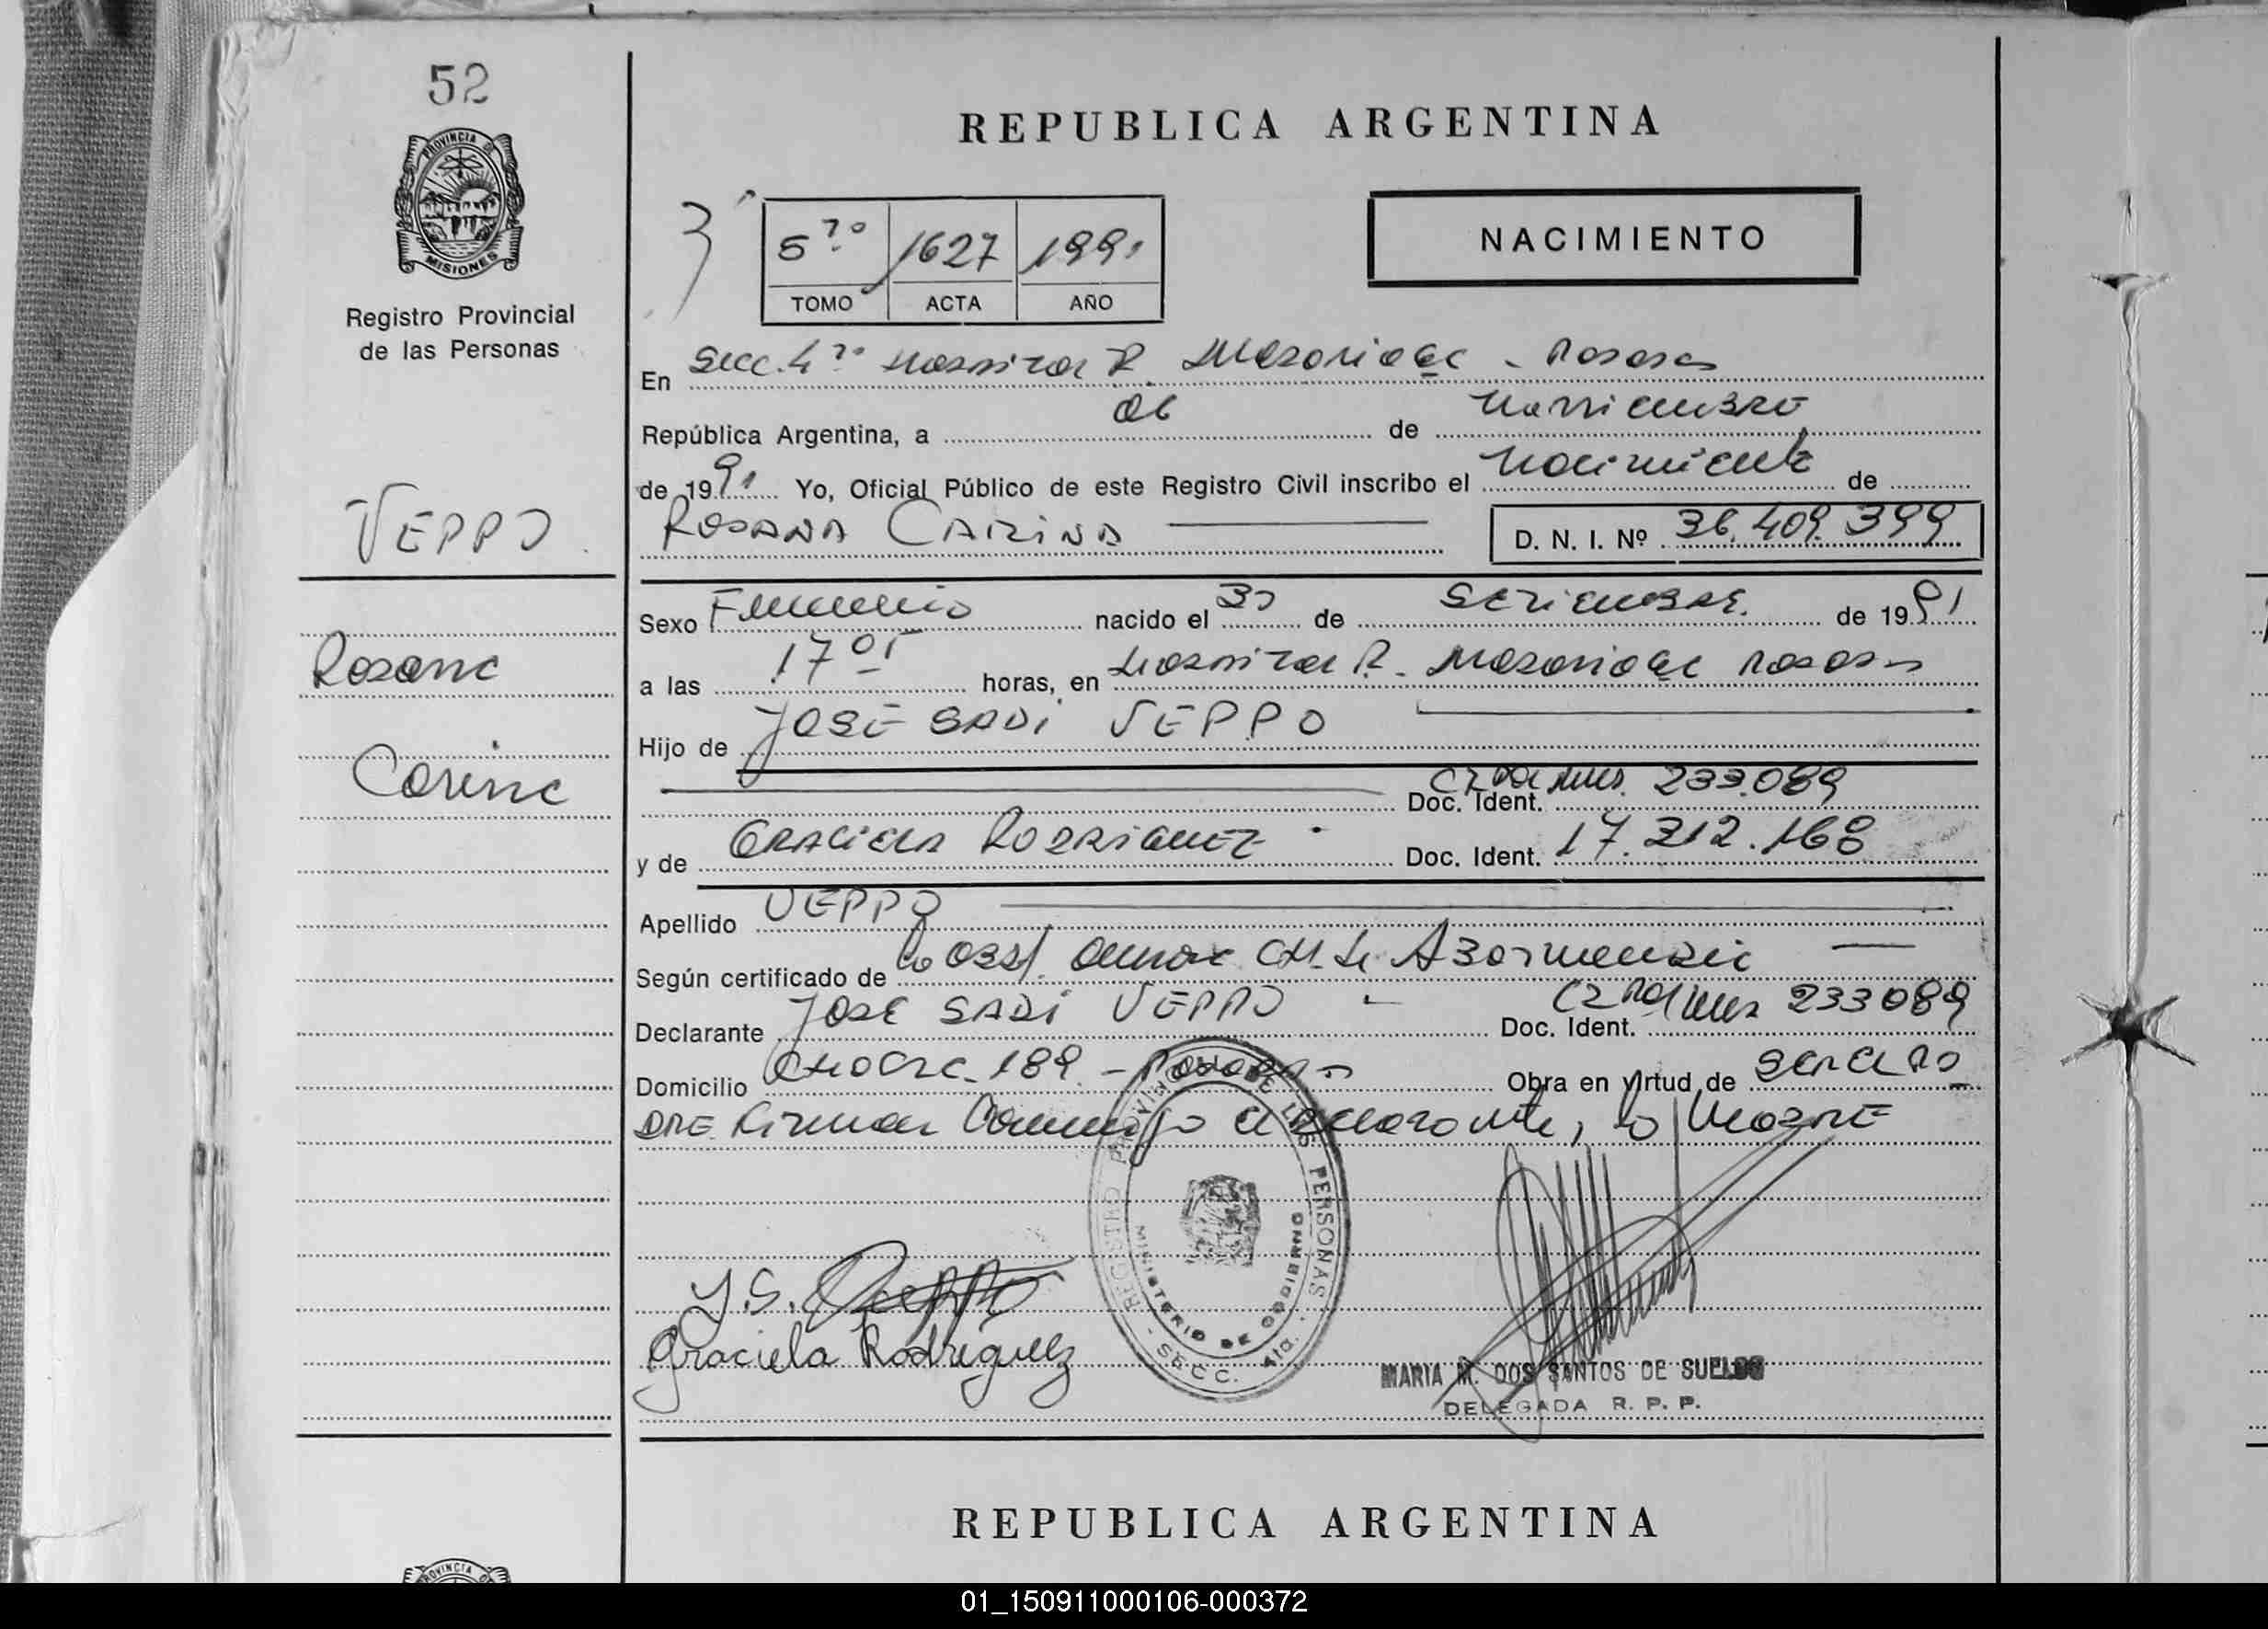 52
PROVINCIA DE
MISIONES
Registro Provincial
de las Personas
VEPPO
Rosana
Carina
REPUBLICA ARGENTINA
NACIMIENTO
5to 1627 1991
TOMO ACTA AÑO
En Secc. 4ta Hospital R. Madariaga - Posadas
República Argentina, a 06 de Noviembre
de 1991 Yo, Oficial Público de este Registro Civil inscribo el Nacimiento de
ROSANA CARINA D. N. I. Nº 36.409.399
Sexo Femenino nacido el 30 de Setiembre de 1991
a las 17 05 horas, en Hospital R. Madariaga Posadas
Hijo de JOSE SADI VEPPO
Doc. Ident. 233.089
y de GRACIELA RODRIGUEZ Doc. Ident. 17.312.168
Apellido VEPPO
Según certificado de la Obst.
Declarante JOSE SADI VEPPO Doc. Ident. 233089
Domicilio 189 - Posadas Obra en virtud de
Firman Conmigo el declarante, la Madre
REGISTRO PROVINCIAL DE LAS PERSONAS
MINISTERIO DE GOBIERNO
SECC. 4ta.
J. S. Veppo
Graciela Rodriguez
MARIA M. DOS SANTOS DE SUELDO
DELEGADA R. P. P.
REPUBLICA ARGENTINA
PROVINCIA DE
01_150911000106-000372